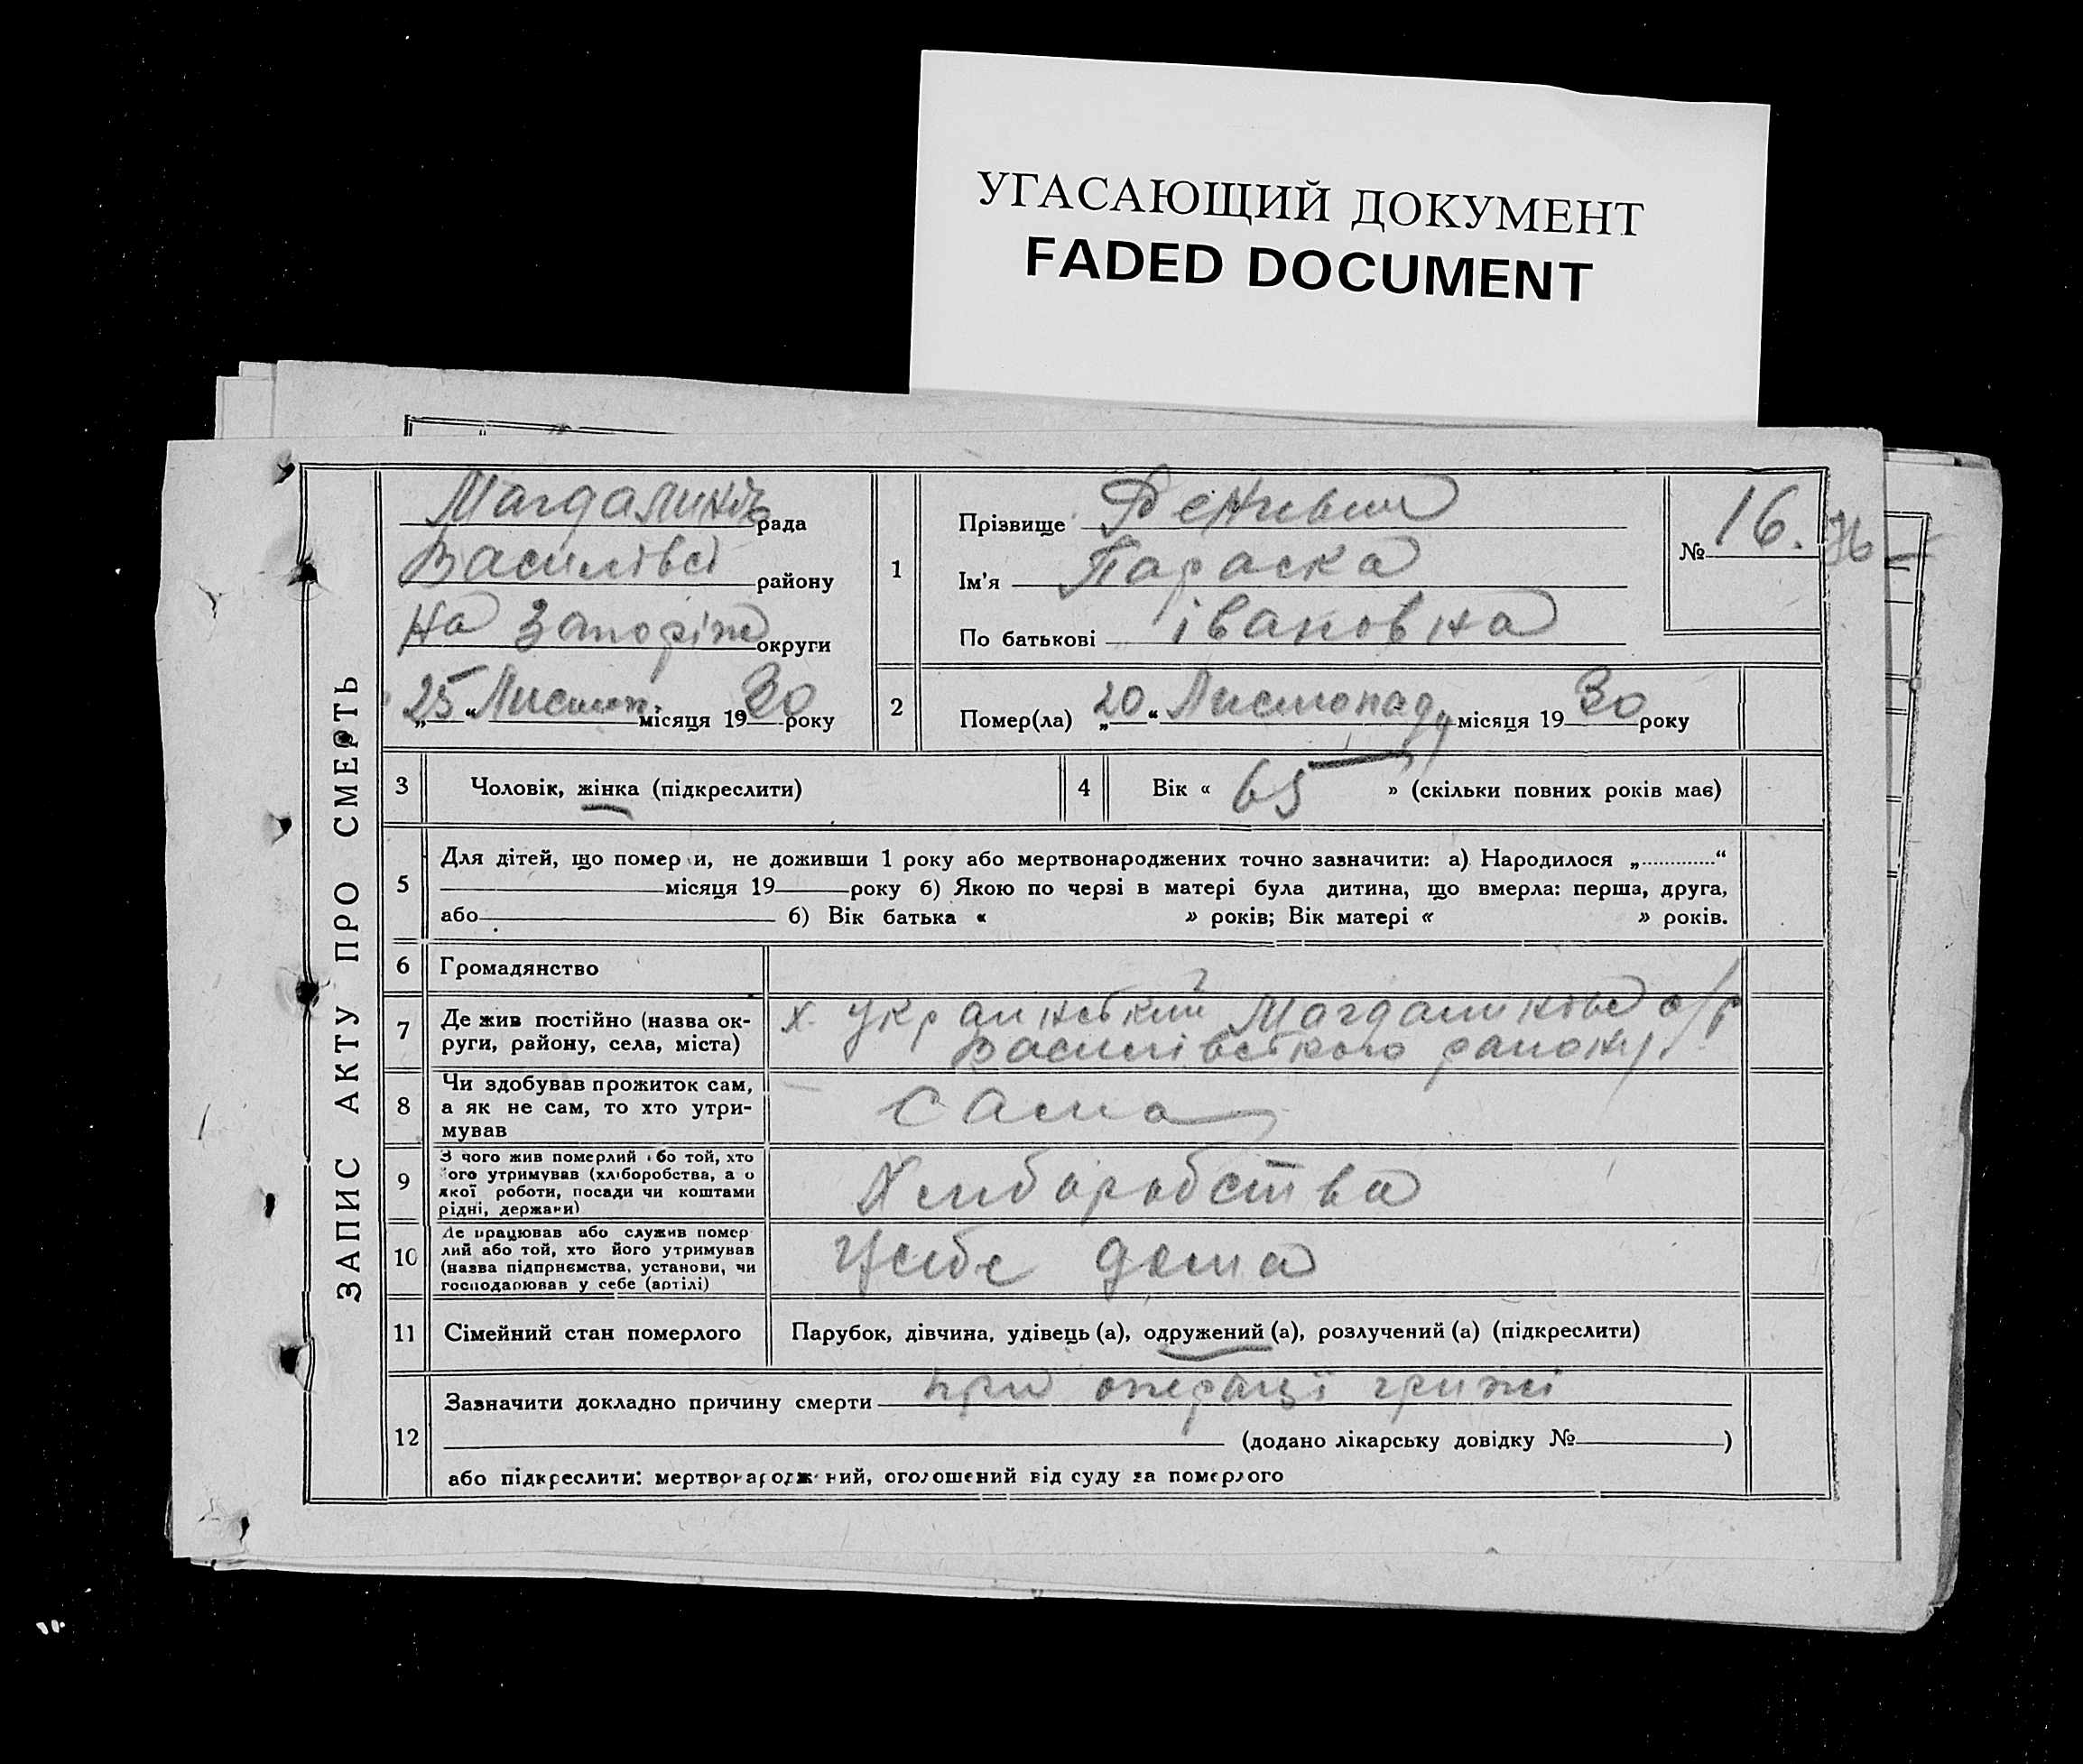 УГАСАЮЩИЙ ДОКУМЕНТ
FADED DOCUMENT
ЗАПИС АКТУ ПРО СМЕРТЬ
Магдалинів рада
Василівсі району
на Запоріж округи
„25“ Листоп. місяця 1930 року
1
Прізвище
Ім'я Параска
По батькові івановна
№ 16.
2
Помер(ла) „20“ Листопаду місяця 1930 року
3
Чоловік, жінка (підкреслити)
4
Вік « 65 » (скільки повних років має)
5
Для дітей, що помер и, не доживши 1 року або мертвонароджених точно зазначити: а) Народилося „ “
місяця 19 року б) Якою по черзі в матері була дитина, що вмерла: перша, друга,
або б) Вік батька « » років; Вік матері « » років.
6
Громадянство
7
Де жив постійно (назва ок-
руги, району, села, міста)
х. Украинський Магдалинівс с/р
Василівського району.
8
Чи здобував прожиток сам,
а як не сам, то хто утри-
мував
Сама
9
З чого жив померлий або той, хто
його утримував (хліборобства, або
якої роботи, посади чи коштами
рідні, держави)
Хлиборобства
10
Де працював або служив помер-
лий або той, хто його утримував
(назва підприємства, установи, чи
господарював у себе (артілі)
Усебе дома
11
Сімейний стан померлого
Парубок, дівчина, удівець (а), одружений (а), розлучений (а) (підкреслити)
12
Зазначити докладно причину смерти при операції грижі
(додано лікарську довідку № )
або підкреслити: мертвонароджений, оголошений від суду за померлого